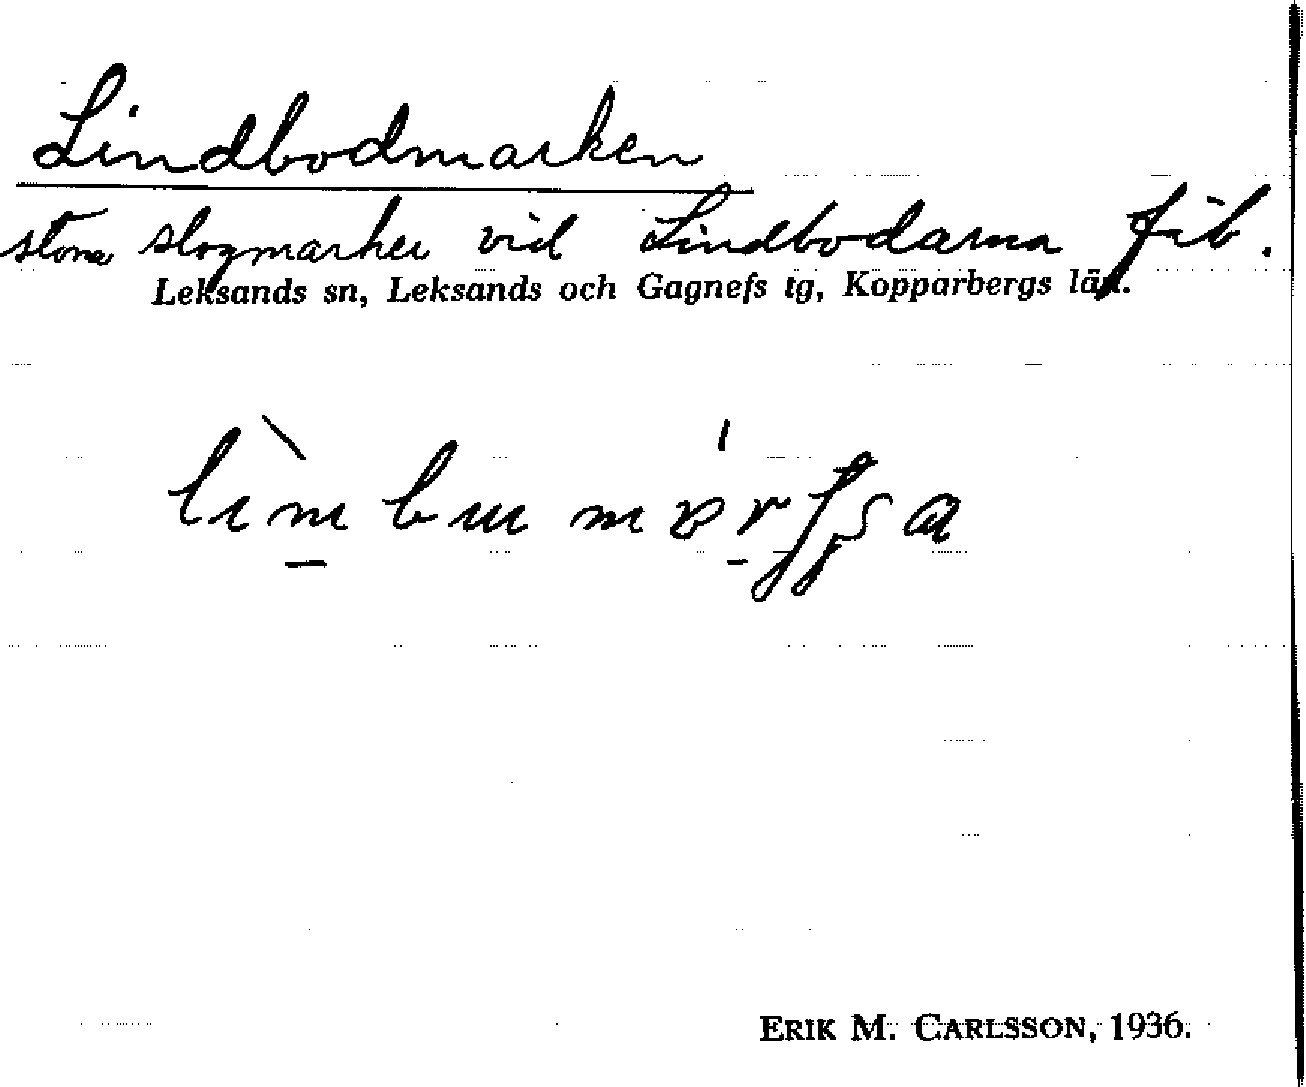 Lindbodmarken
stora slogmarker vid Lindbodarna fäb.
Leksands sn, Leksands och Gagnefs tg, Kopparbergs län.
ERIK M. CARLSSON, 1936.